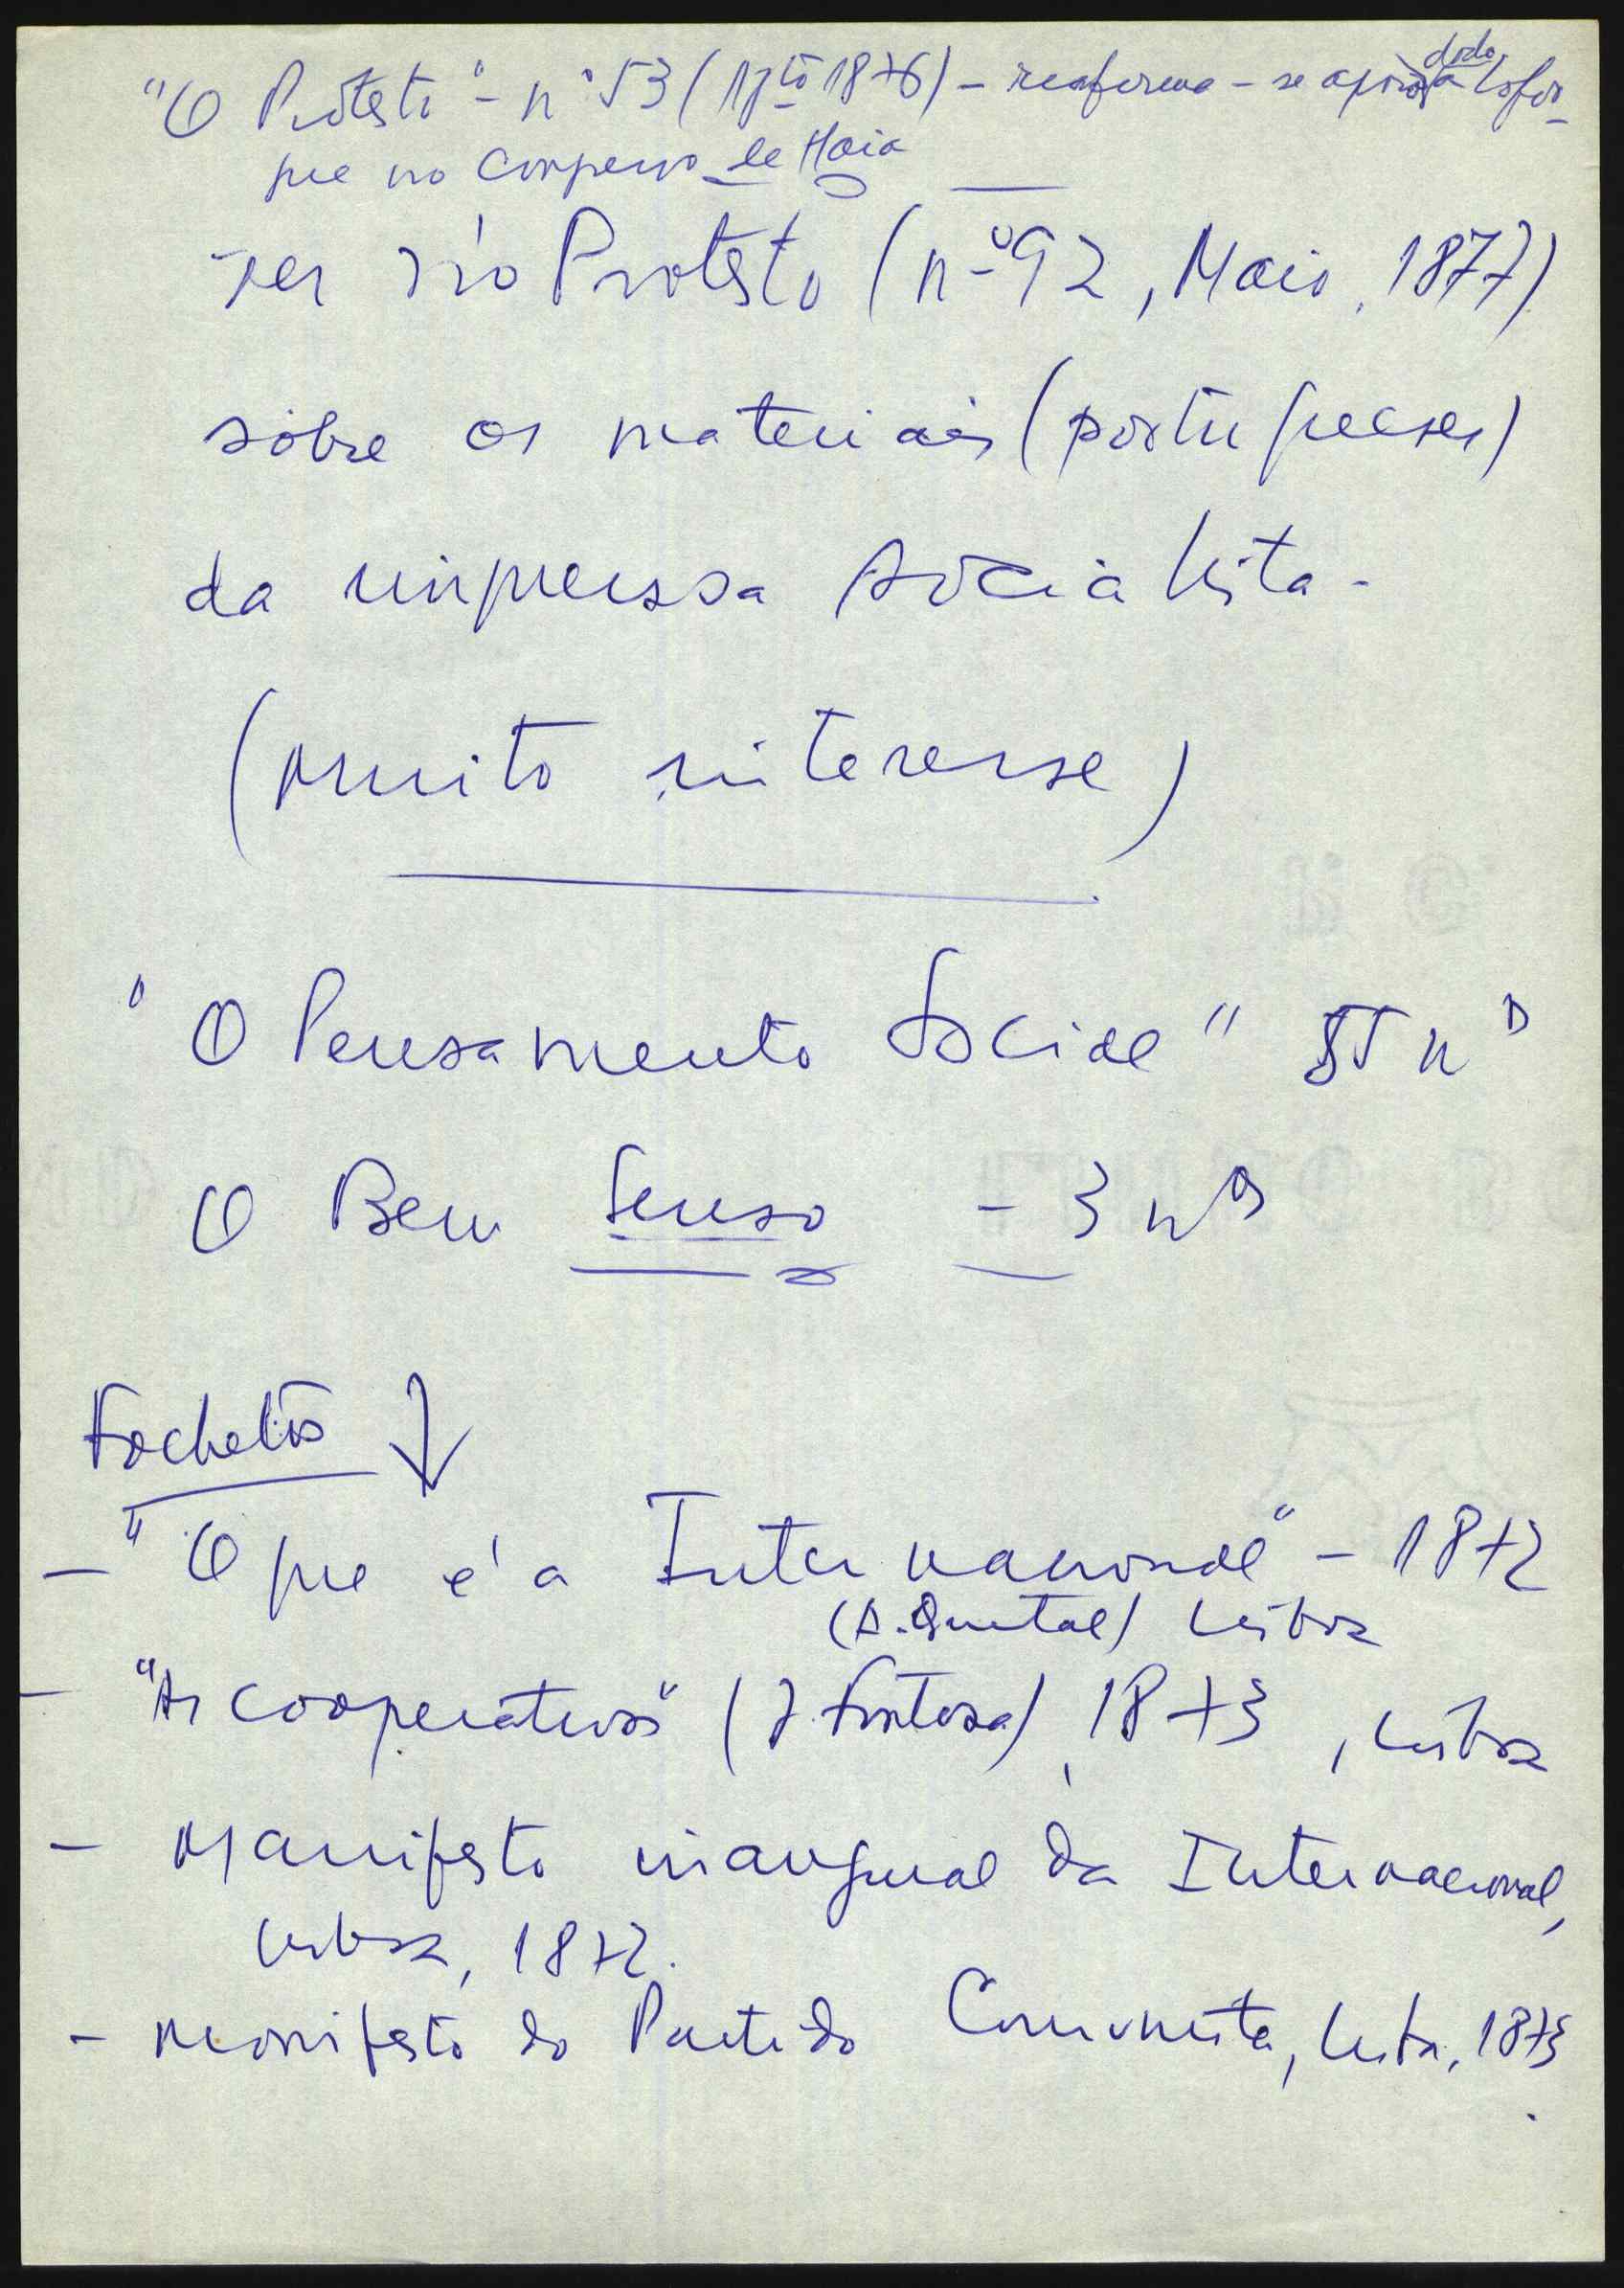 "O Protesto" - nº 53 ( 1876) - reafirma - se apoio dado a Lafar-
gue no Congresso de Haia
Ver n'o Protesto (nº 92, Maio, 1877)
sôbre os materiais (portugueses)
da imprensa socialista -
(muito interesse)
"O Pensamento Social" 55 nos
O Bem Senso - 3 nos
Folhetos ↓
- "O que é a Internacional" - 1872
(A. Quental) Lisboa
- "As cooperativas" (J. Fontana), 1873, Lisboa
- Manifesto inaugural da Internacional,
Lisboa, 1872.
- Manifesto do Partido Comunista, Lisboa, 1873.